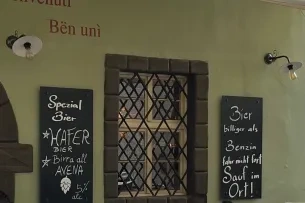 Benvenuti
Bën unì
Spezial
Bier
HAFER
BIER
Birra all
AVENA
5%
alc
Bier
billiger als
Benzin
fahr nicht fort
Sauf im
Ort!